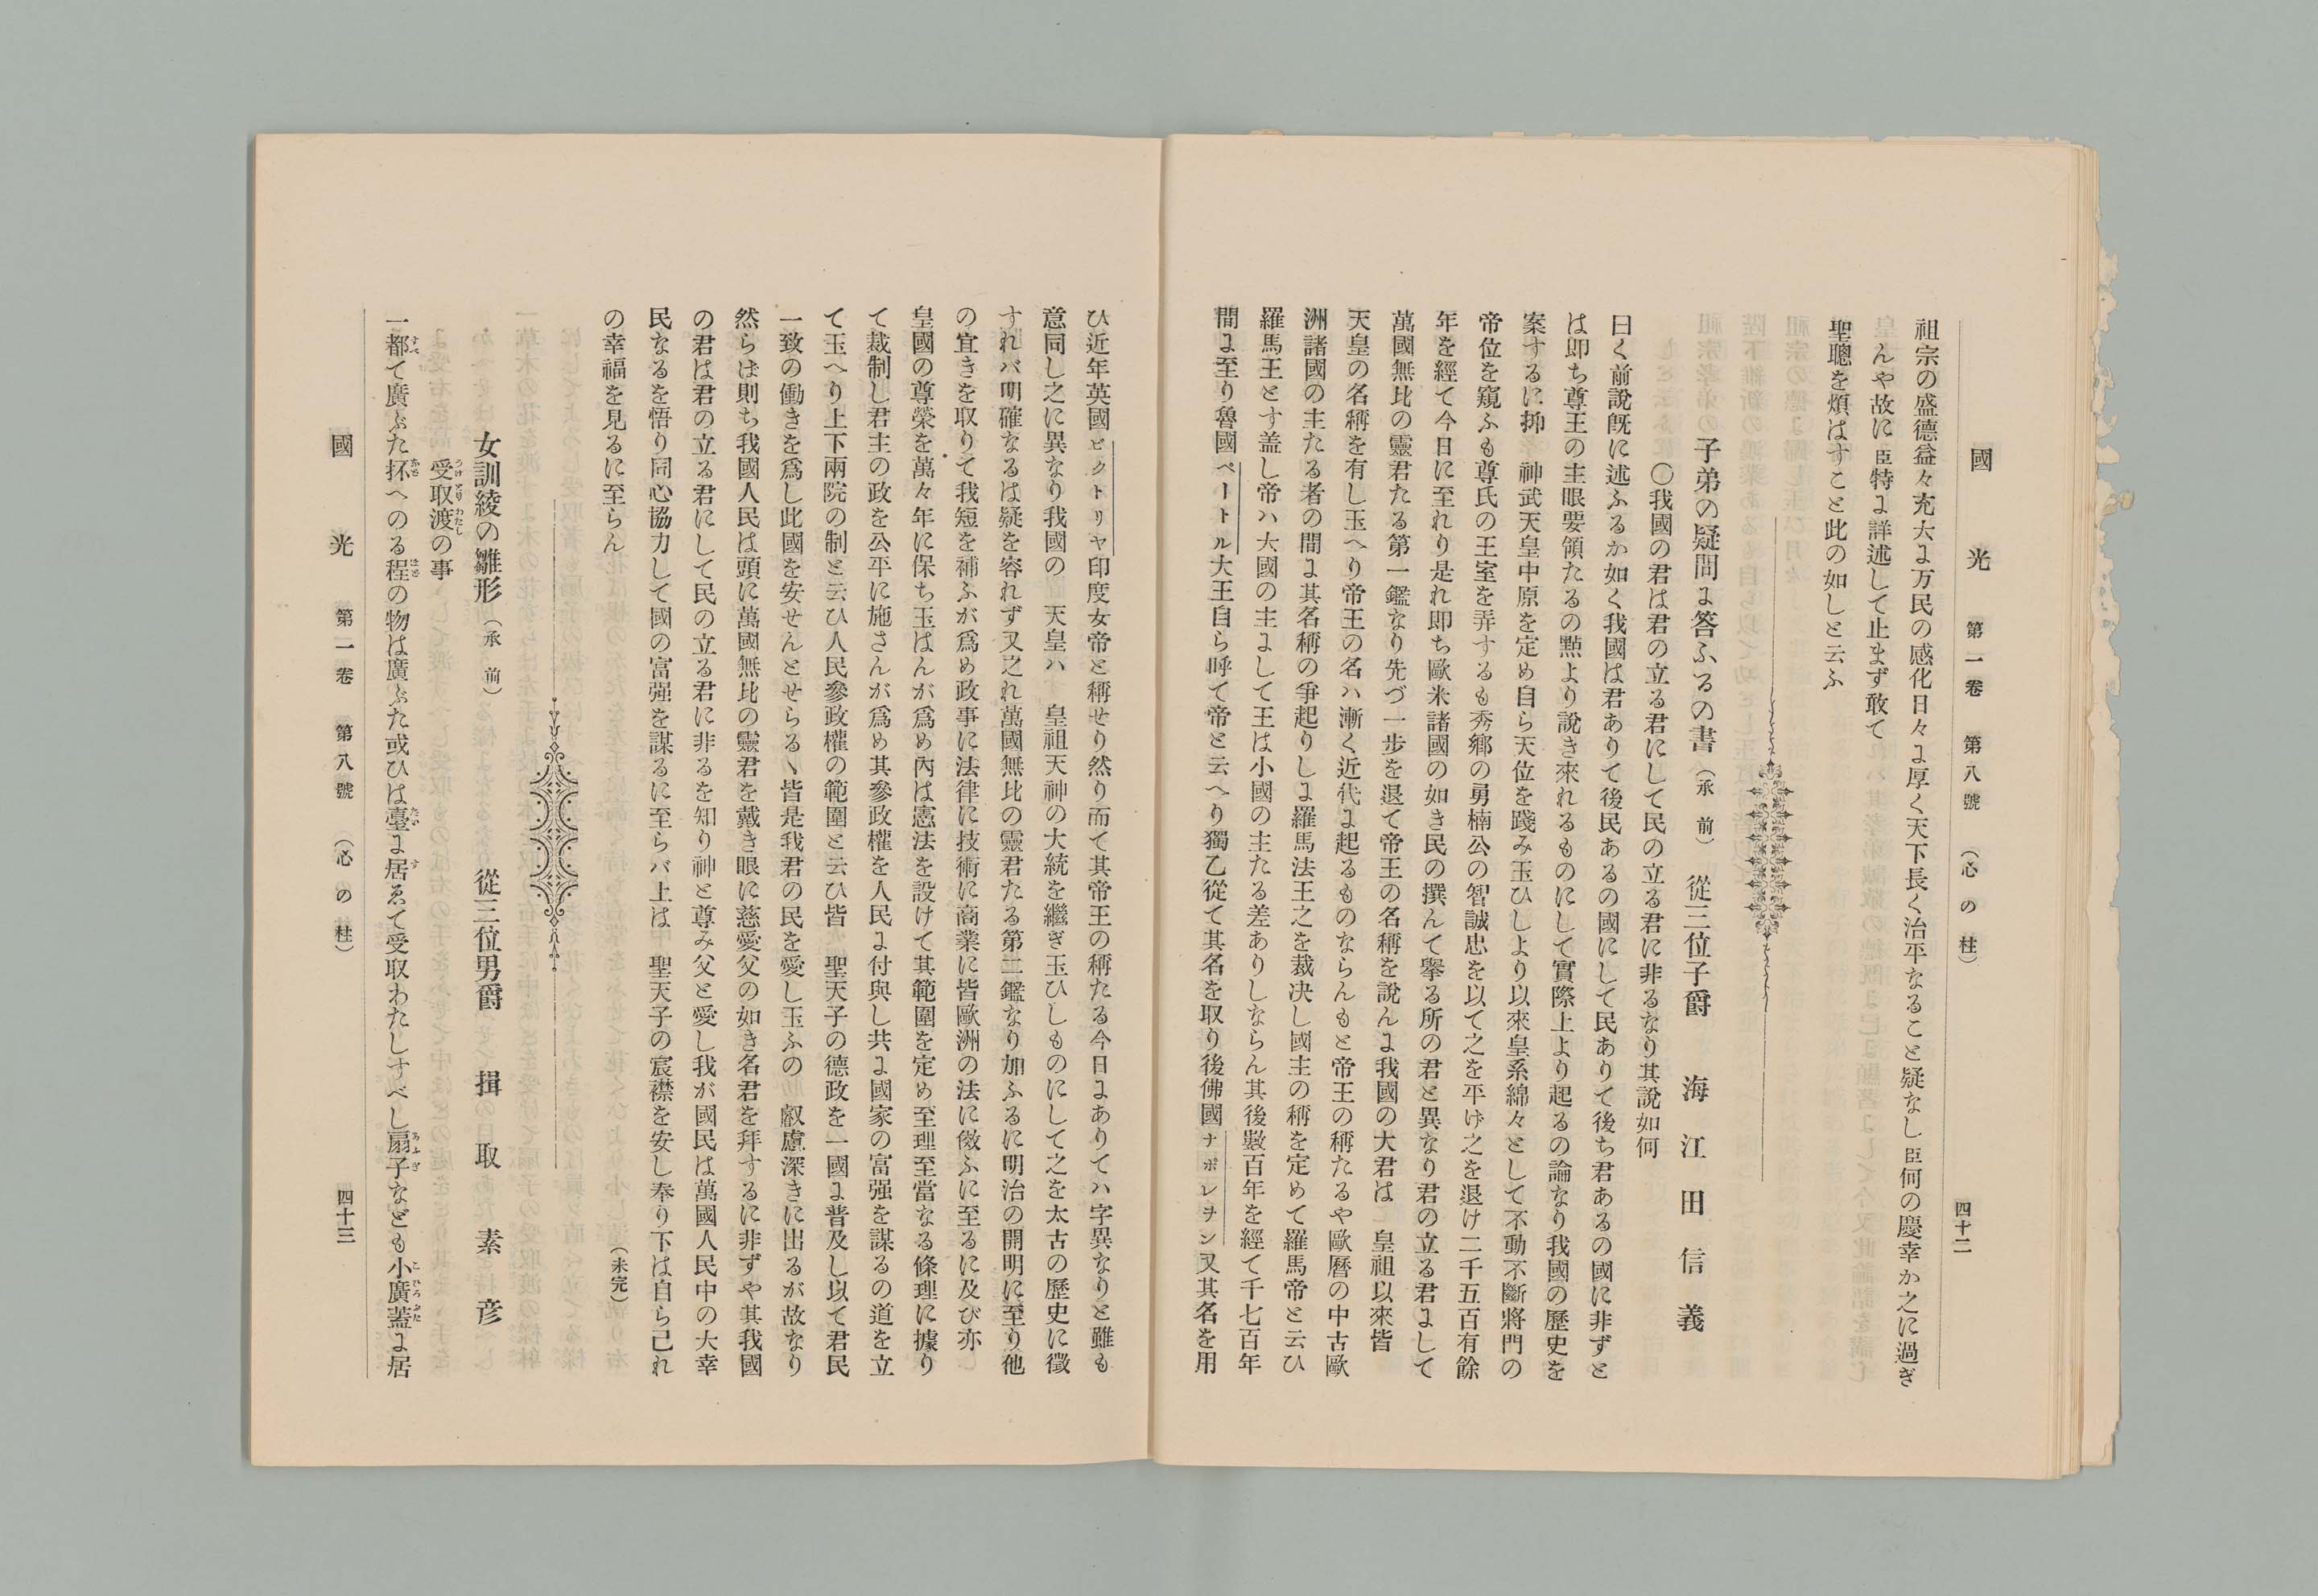 國光 第一卷 第八號 (心の柱) 四十二
祖宗の盛德益々充大に万民の感化日々に厚く天下長く治平なること疑なし臣何の慶幸か之に過ぎ
んや故に臣特に詳述して止まず敢て
聖聰を煩はすこと此の如しと云ふ
子弟の疑問に答ふるの書(承前) 從三位子爵 海江田信義
〇我國の君は君の立る君にして民の立る君に非るなり其說如何
曰く前說旣に述ふるか如く我國は君ありて後民あるの國にして民ありて後ち君あるの國に非ずと
は卽ち尊王の主眼要領たるの㸃より說き來れるものにして實際上より起るの論なり我國の歷史を
案するに抑 神武天皇中原を定め自ら天位を踐み玉ひしより以來皇系綿々として不動不斷將門の
帝位を窺ふも尊氏の王室を弄するも秀鄕の勇楠公の智誠忠を以て之を平け之を退け二千五百有餘
年を經て今日に至れり是れ卽ち歐米諸國の如き民の撰んて擧る所の君と異なり君の立る君にして
萬國無比の靈君たる第一鑑なり先づ一步を退て帝王の名稱を說んに我國の大君は 皇祖以來皆
天皇の名稱を有し玉へり帝王の名ハ漸く近代に起るものならんもと帝王の稱たるや歐曆の中古歐
洲諸國の主たる者の間に其名稱の爭起りしに羅馬法王之を裁决し國主の稱を定めて羅馬帝と云ひ
羅馬王とす盖し帝ハ大國の主にして王は小國の主たる差ありしならん其後數百年を經て千七百年
間に至り魯國ペートル大王自ら呼て帝と云へり獨乙從て其名を取り後佛國ナポレヲン又其名を用
ひ近年英國ビクトリヤ印度女帝と稱せり然り而て其帝王の稱たる今日にありてハ字異なりと雖も
意同し之に異なり我國の 天皇ハ 皇祖天神の大統を繼ぎ玉ひしものにして之を太古の歷史に徵
すれバ明確なるは疑を容れず又之れ萬國無比の靈君たる第二鑑なり加ふるに明治の開明に至り他
の宜きを取りて我短を補ふが爲め政事に法律に技術に商業に皆歐洲の法に傚ふに至るに及び亦
皇國の尊榮を萬々年に保ち玉はんが爲め內は憲法を設けて其範圍を定め至理至當なる條理に據り
て裁制し君主の政を公平に施さんが爲め其參政權を人民に付與し共に國家の富强を謀るの道を立
て玉へり上下兩院の制と云ひ人民參政權の範圍と云ひ皆 聖天子の德政を一國に普及し以て君民
一致の働きを爲し此國を安せんとせらるゝ皆是我君の民を愛し玉ふの 叡慮深きに出るが故なり
然らは則ち我國人民は頭に萬國無比の靈君を戴き眼に慈愛父の如き名君を拜するに非ずや其我國
の君は君の立る君にして民の立る君に非るを知り神と尊み父と愛し我が國民は萬國人民中の大幸
民なるを悟り同心協力して國の富强を謀るに至らバ上は 聖天子の宸襟を安し奉り下は自ら己れ
の幸福を見るに至らん (未完)
女訓綾の雛形(承前) 從三位男爵 揖取素彥
受取渡の事
一都て廣ぶた抔へのる程の物は廣ぶた或ひは臺に居ゑて受取わたしすべし扇子なども小廣蓋に居
國光 第一卷 第八號 (心の柱) 四十三